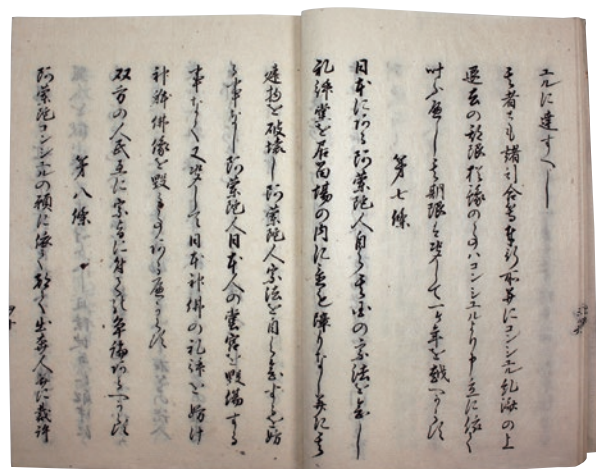 ヱルに達すへし
其者とも諸引合等奉行所并にコンシユル糺済の上
退去の期限猶豫の事ハコンシユルより申立に依て
叶ふへし其期限ハ決して一ケ年を越へからす
第七條
日本に在る阿蘭陀人自ら其国の宗法を念し
礼拝堂を居留場の内に置も障りなし并に其
建物を破壊し阿蘭陀人宗法を自ら念するを妨
る事なし阿蘭陀人日本人の堂宮を毀傷する
事なく又決して日本神佛の礼拝を妨け
神躰佛像を毀る事ある可からす
双方の人民互に宗旨に付ての争論あるへからす
第八條
阿蘭陀コンシユルの願に依て都て出奔人并に裁許